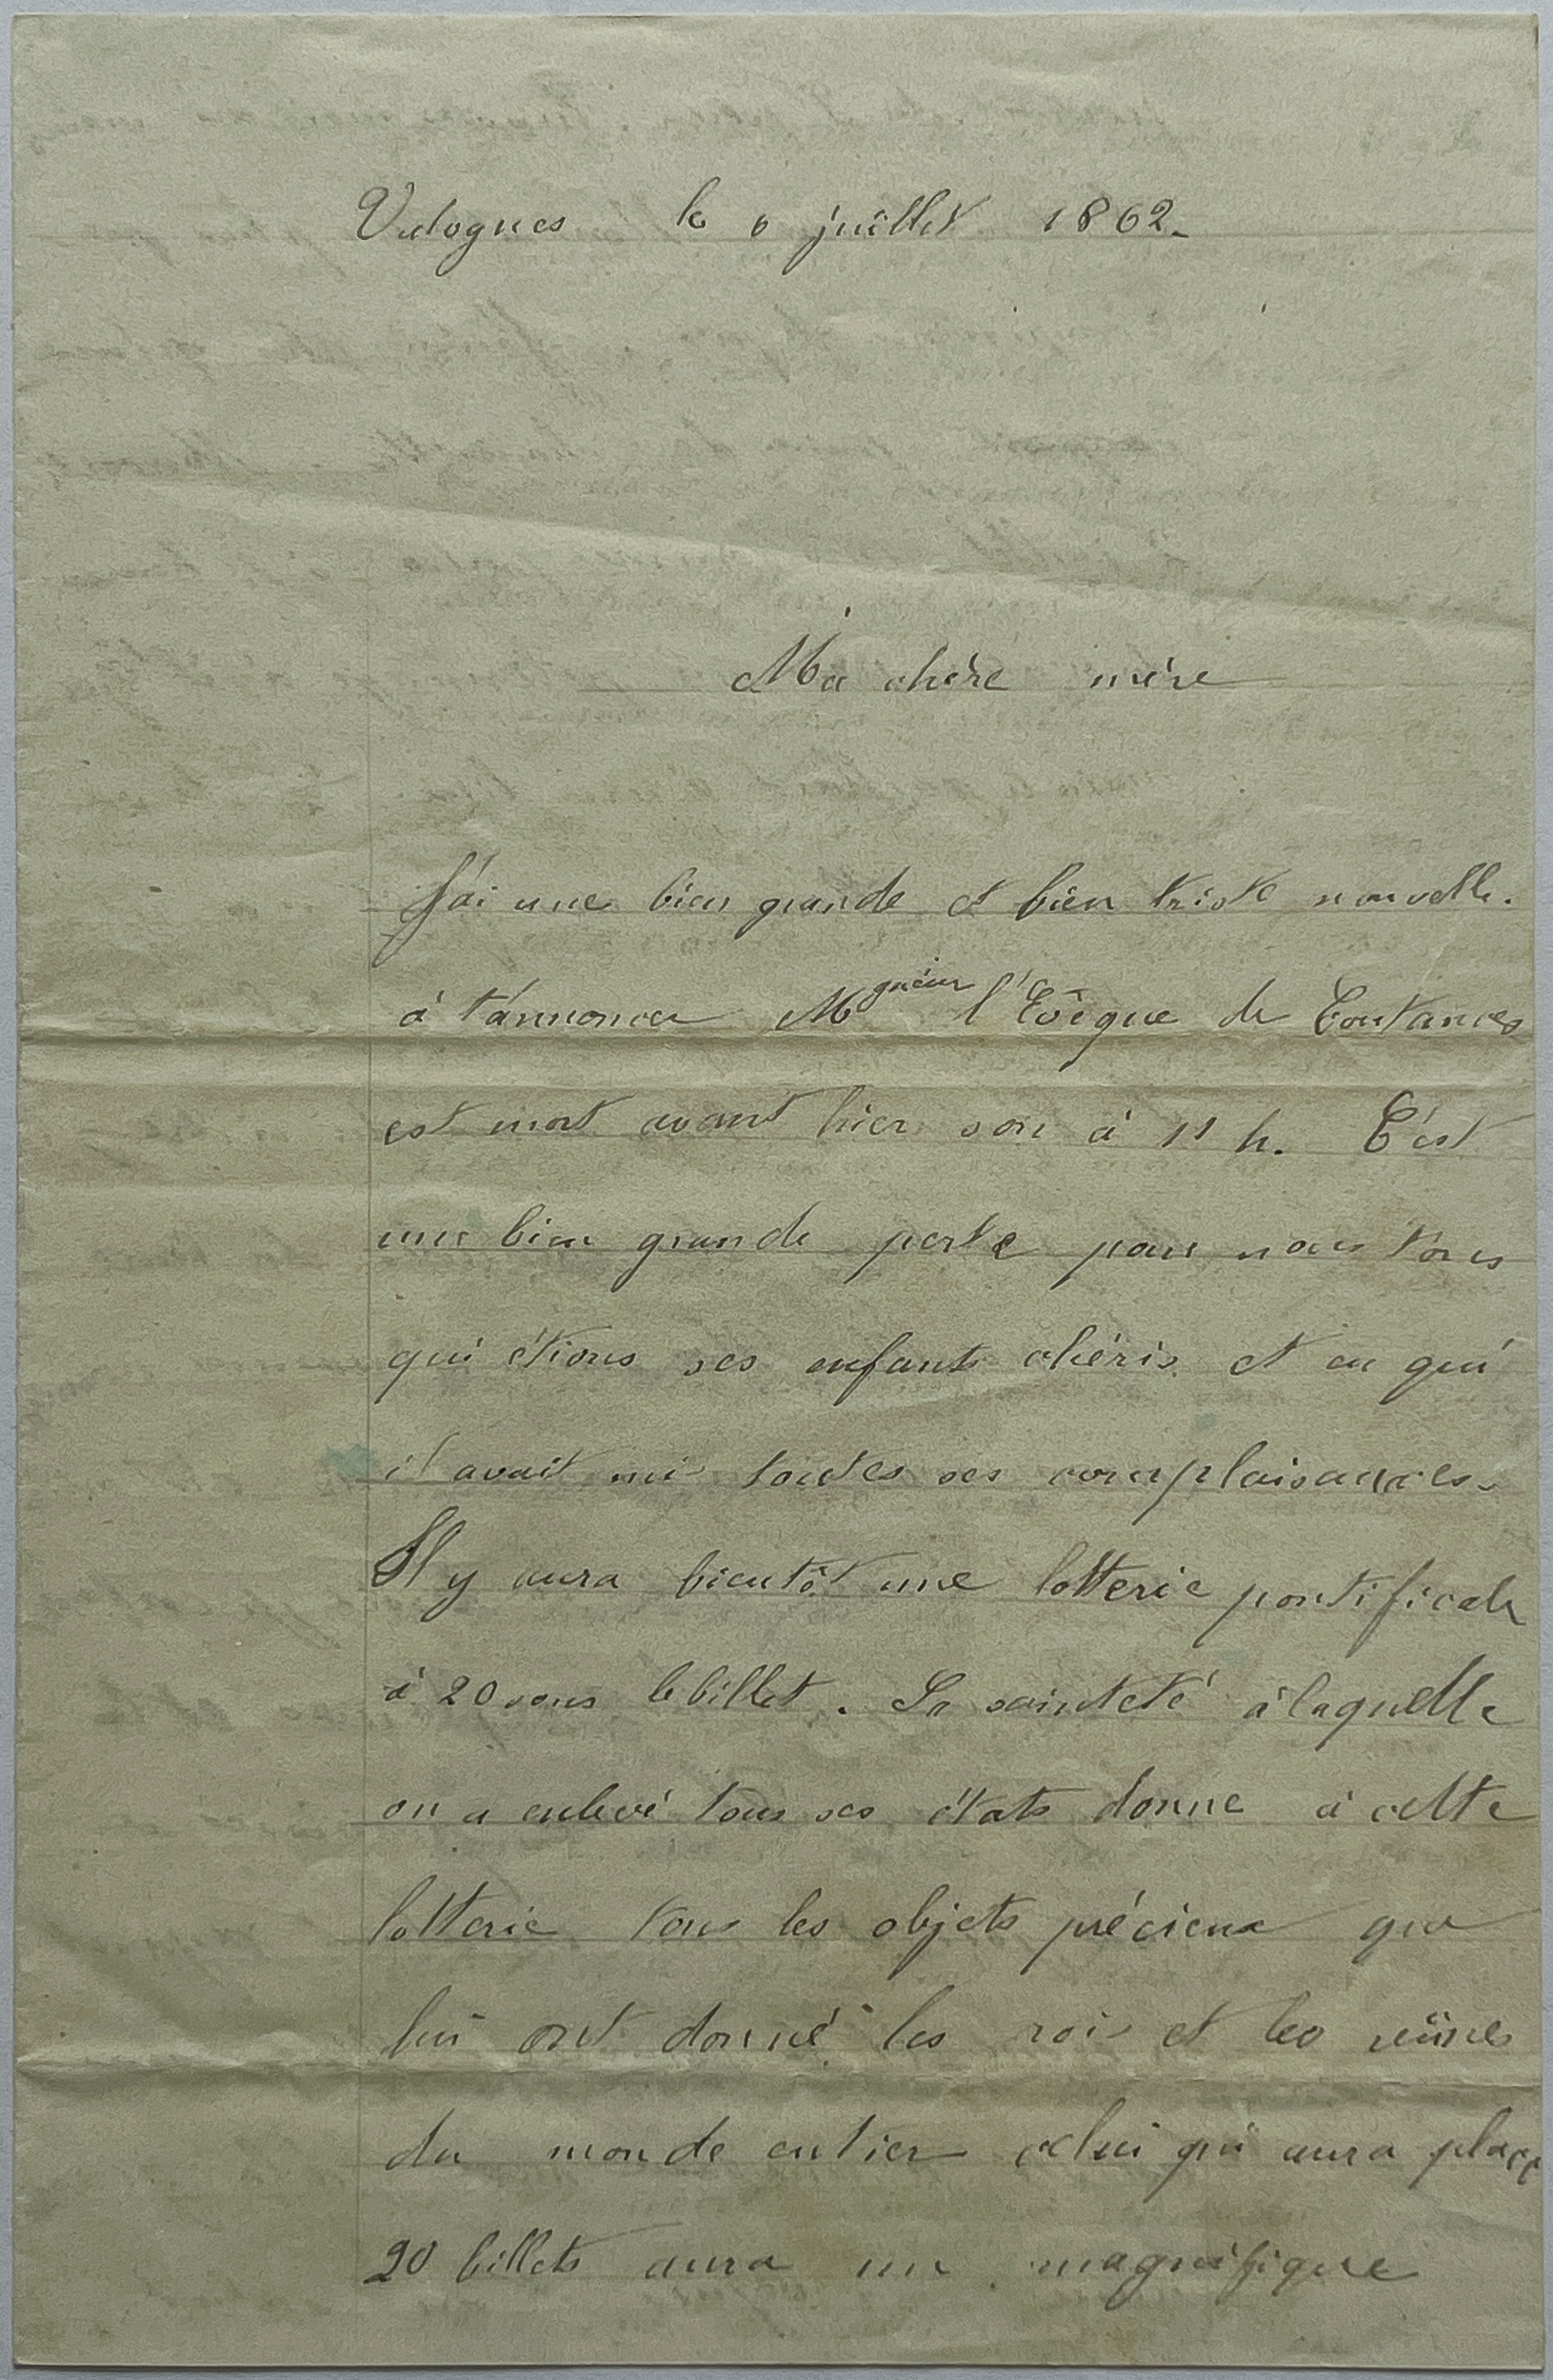 Valognes le 6 juillet 1862.
Ma chère mère
J'ai une bien grande et bien triste nouvelle.
à t'annoncer Mgneieur l'Evêque de Coutances
est mort avant hier soir à 11 h. C'est
une bien grande perte pour nous tous
qui étions ses enfants chéris et en qui
il avait mis toutes ses complaisances.
Il y aura bientôt une lotterie pontificale
à 20 sous le billet. Sa sainteté à laquelle
on a enlevé tous ses états donne à cette
lotterie tous les objets précieux que
lui ont donné les rois et les reines
du monde entier celui qui aura placé
20 billets aura un magnifique